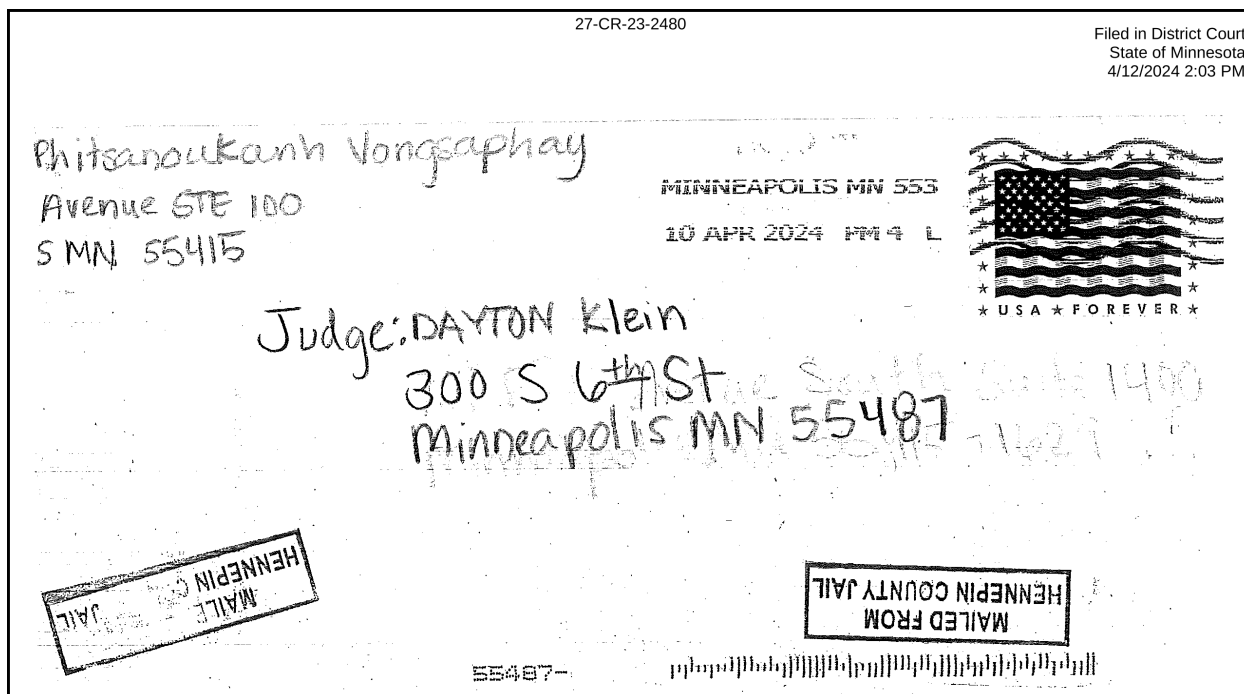 27-CR-23-2480
Filed in District Court
State of Minnesota
4/12/2024 2:03 PM
Phitsanoukanh Vongsaphay
Avenue STE 100
S MN 55415
MINNEAPOLIS MN 553
10 APR 2024 PM 4 L
USA FOREVER
Judge: DAYTON Klein
300 S 6th St
South 1400
Minneapolis MN 55487
MAILED FROM
HENNEPIN COUNTY JAIL
HENNEPIN
JAIL
55487-